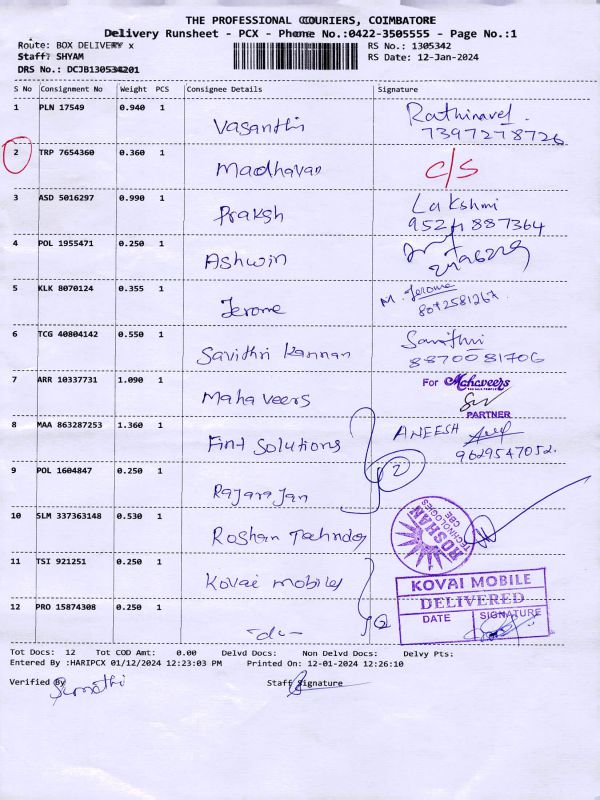 THE PROFESSIONAL COURIERS, COIMBATORE
Delivery Runsheet - PCX - Phone No.:0422-3505555 - Page No.:1
Route: BOX DELIVERY x RS No.: 1305342
Staff: SHYAM RS Date: 12-Jan-2024
DRS No.: DCJB130534201
S No Consignment No Weight PCS Consignee Details Signature
1 PLN 17549 0.940 1 Vasanthi Rathinavel
7397278726
2 TRP 7654360 0.360 1 Madhavan C/S
3 ASD 5016297 0.990 1 Praksh Lakshmi
887364
4 POL 1955471 0.250 1 Ashwin
5 KLK 8070124 0.355 1 Jerome M. Jerome
8072581267
6 TCG 40804142 0.550 1 Savithri Kannan Savithri
8870081706
7 ARR 10337731 1.090 1 Mahaveers For Mahaveers
PARTNER
8 MAA 863287253 1.360 1 Fint Solutions ANEESH
9629547052.
9 POL 1604847 0.250 1 Rajarajan 2
10 SLM 337363148 0.530 1 Roshan ROSHAN TECHNOLOGIES CBE
11 TSI 921251 0.250 1 Kovai Mobiles KOVAI MOBILE
DELIVERED
12 PRO 15874308 0.250 1 -do- 2 DATE SIGNATURE
Tot Docs: 12 Tot COD Amt: 0.00 Delvd Docs: Non Delvd Docs: Delvy Pts:
Entered By :HARIPCX 01/12/2024 12:23:03 PM Printed On: 12-01-2024 12:26:10
Verified By Staff Signature